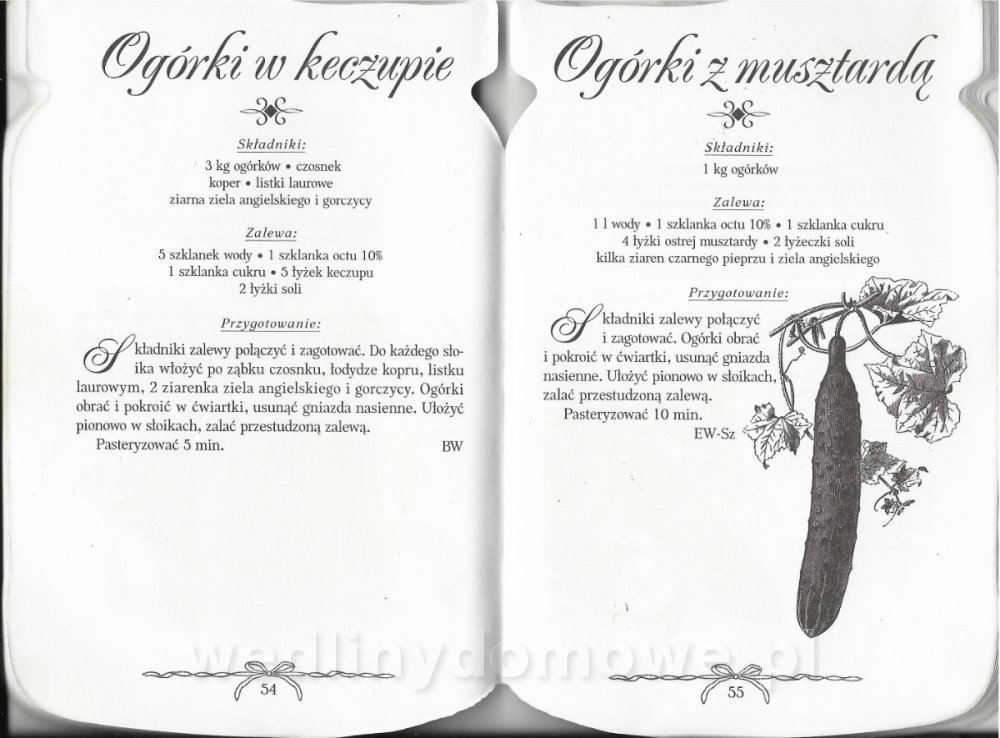 Ogórki w keczupie
Składniki:
3 kg ogórków • czosnek
koper • listki laurowe
ziarna ziela angielskiego i gorczycy
Zalewa:
5 szklanek wody • 1 szklanka octu 10%
1 szklanka cukru • 5 łyżek keczupu
2 łyżki soli
Przygotowanie:
Składniki zalewy połączyć i zagotować. Do każdego sło-
ika włożyć po ząbku czosnku, łodydze kopru, listku
laurowym, 2 ziarenka ziela angielskiego i gorczycy. Ogórki
obrać i pokroić w ćwiartki, usunąć gniazda nasienne. Ułożyć
pionowo w słoikach, zalać przestudzoną zalewą.
Pasteryzować 5 min. BW
54
Ogórki z musztardą
Składniki:
1 kg ogórków
Zalewa:
1 l wody • 1 szklanka octu 10% • 1 szklanka cukru
4 łyżki ostrej musztardy • 2 łyżeczki soli
kilka ziaren czarnego pieprzu i ziela angielskiego
Przygotowanie:
Składniki zalewy połączyć
i zagotować. Ogórki obrać
i pokroić w ćwiartki, usunąć gniazda
nasienne. Ułożyć pionowo w słoikach,
zalać przestudzoną zalewą.
Pasteryzować 10 min.
EW-Sz
55
wedlinydomowe.pl